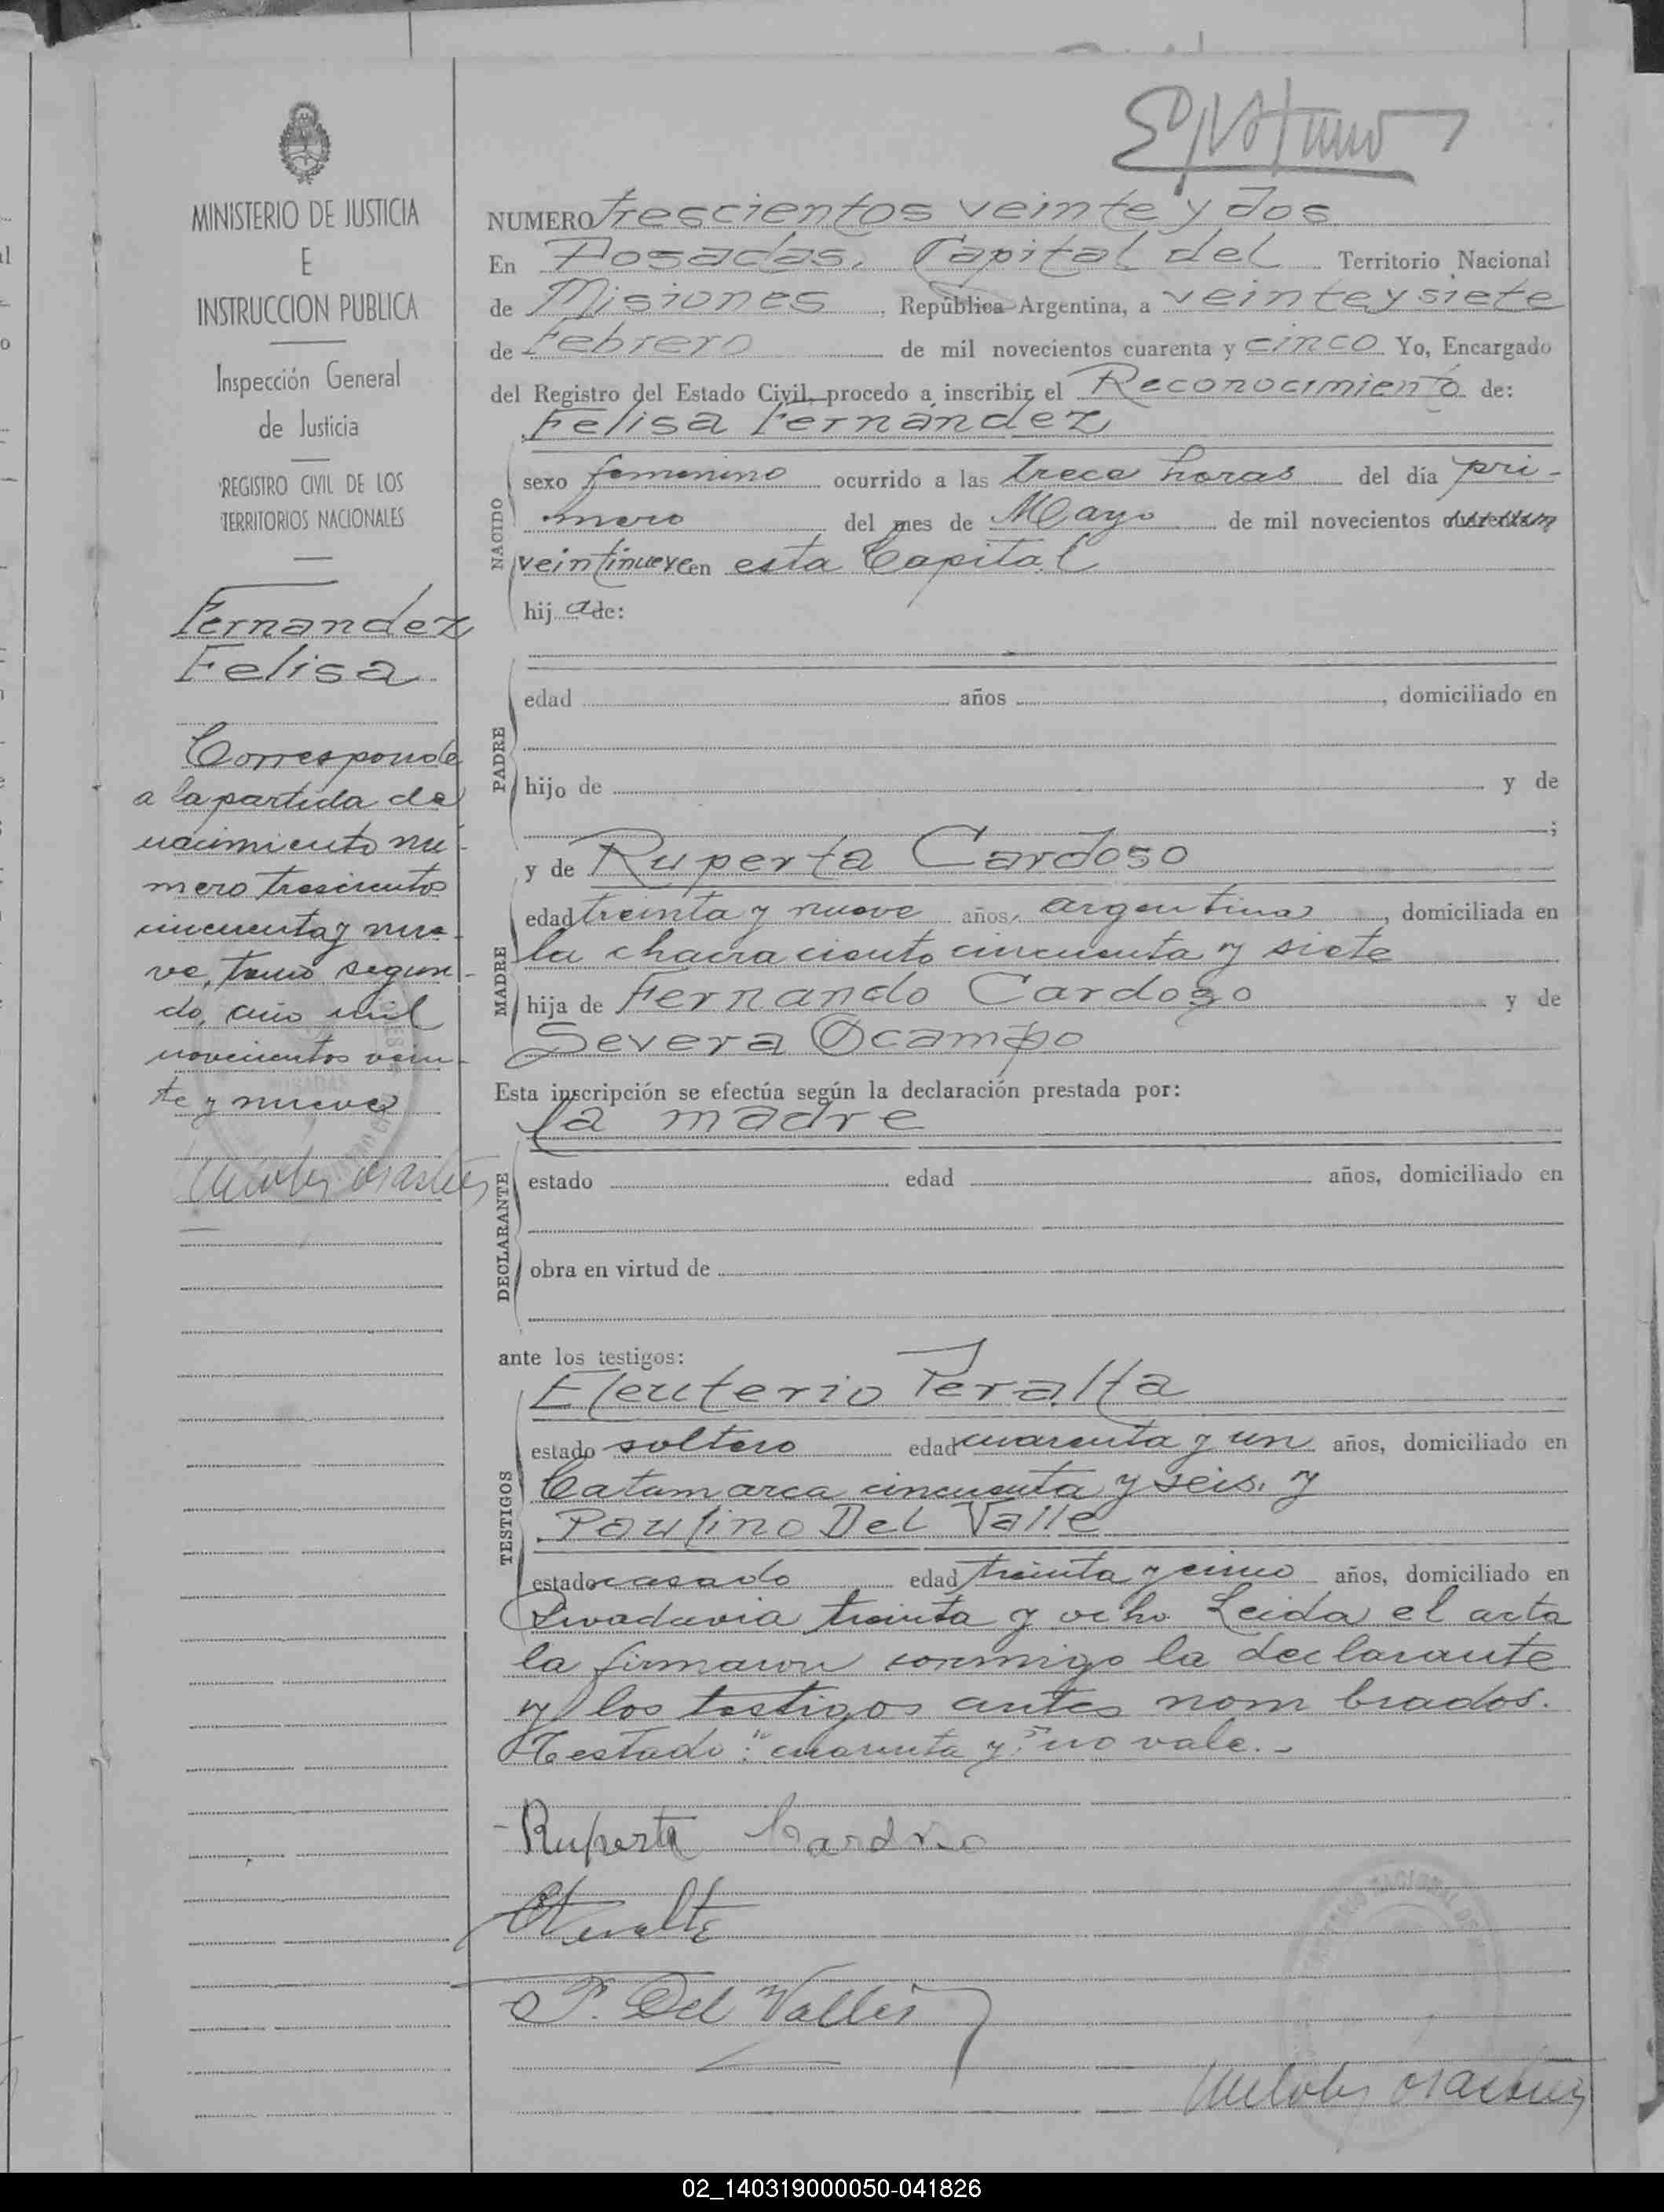 MINISTERIO DE JUSTICIA
E
INSTRUCCION PUBLICA
Inspección General
de Justicia
REGISTRO CIVIL DE LOS
TERRITORIOS NACIONALES
Fernandez
Felisa
Corresponde
a la partida de
nacimiento nu-
mero trescientos
cincuenta y nue-
ve, tomo segun-
do, año mil
novecientos vein-
te y nueve
NUMERO trescientos veinte y dos
En Posadas, Capital del Territorio Nacional
de Misiones, República Argentina, a veinte y siete
de Febrero de mil novecientos cuarenta y cinco Yo, Encargado
del Registro del Estado Civil, procedo a inscribir el Reconocimiento de:
Felisa Fernández
NACIDO
sexo femenino ocurrido a las trece horas del día pri-
mero del mes de Mayo de mil novecientos
veintinueve en esta Capital
hija de:
PADRE
edad años , domiciliado en
hijo de y de
;
MADRE
y de Ruperta Cardoso
edad treinta y nueve años, argentina, domiciliada en
la chacra ciento cincuenta y siete
hija de Fernando Cardoso y de
Severa Ocampo
Esta inscripción se efectúa según la declaración prestada por:
la madre
DECLARANTE
estado edad años, domiciliado en
obra en virtud de
ante los testigos:
TESTIGOS
Eleuterio Peralta
estado soltero edad cuarenta y un años, domiciliado en
Catamarca cincuenta y seis. y
Paulino Del Valle
estado casado edad treinta y cinco años, domiciliado en
Rivadavia treinta y ocho. Leida el acta
la firmaron conmigo la declarante
y los testigos antes nombrados.
Testado: "cuarenta y" no vale.-
Ruperta Cardoso
EPeralta
P. Del Valle
02_140319000050-041826